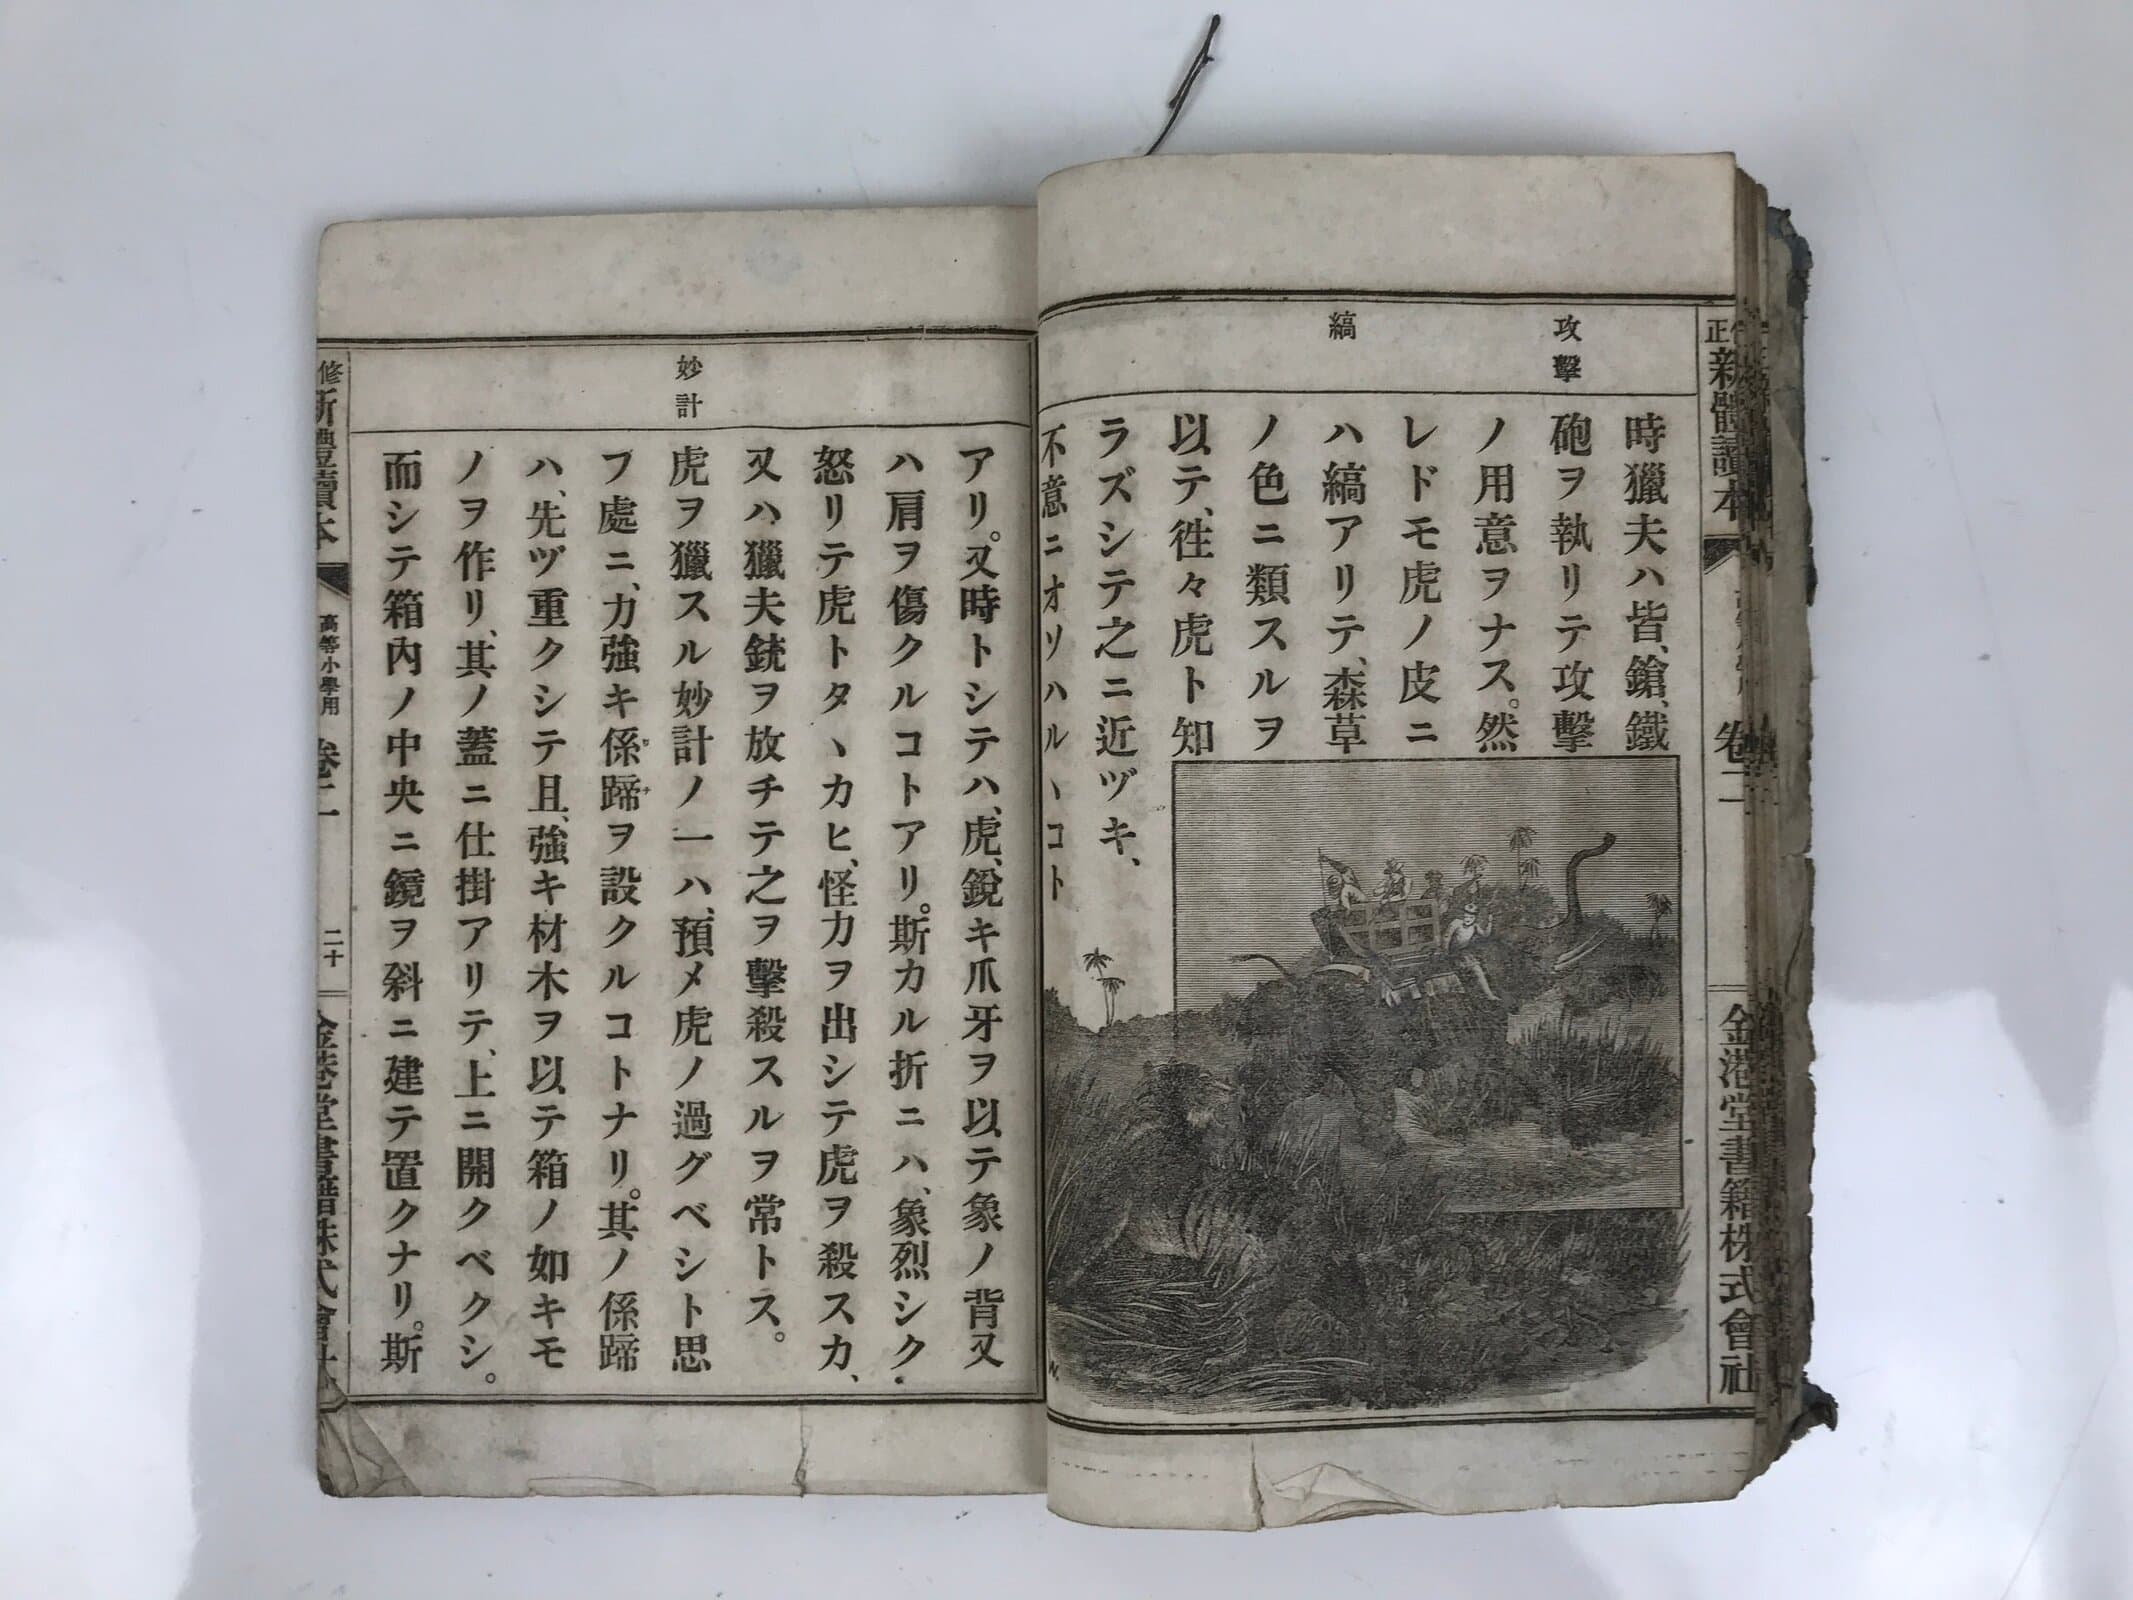 攻擊
縞
時獵夫ハ皆、鎗、鐵
砲ヲ執リテ攻擊
ノ用意ヲナス。然
レドモ虎ノ皮ニ
ハ縞アリテ、森草
ノ色ニ類スルヲ
以テ、徃々虎ト知
ラズシテ之ニ近ヅキ、
不意ニオソハルヽコト
正新體讀本
卷二
金港堂書籍株式會社
N.
妙計
アリ。又時トシテハ、虎、銳キ爪牙ヲ以テ象ノ背又
ハ肩ヲ傷クルコトアリ。斯カル折ニハ、象烈シク
怒リテ虎トタヽカヒ、怪力ヲ出シテ虎ヲ殺スカ、
又ハ獵夫銃ヲ放チテ之ヲ擊殺スルヲ常トス。
虎ヲ獵スル妙計ノ一ハ、預メ虎ノ過グベシト思
フ處ニ、力強キ係蹄ヲ設クルコトナリ。其ノ係蹄
ハ、先ヅ重クシテ且、強キ材木ヲ以テ箱ノ如キモ
ノヲ作リ、其ノ蓋ニ仕掛アリテ、上ニ開クベクシ。
而シテ箱內ノ中央ニ鏡ヲ斜ニ建テ置クナリ。斯
修新體讀本
高等小學用
卷二
二十
金港堂書籍株式會社